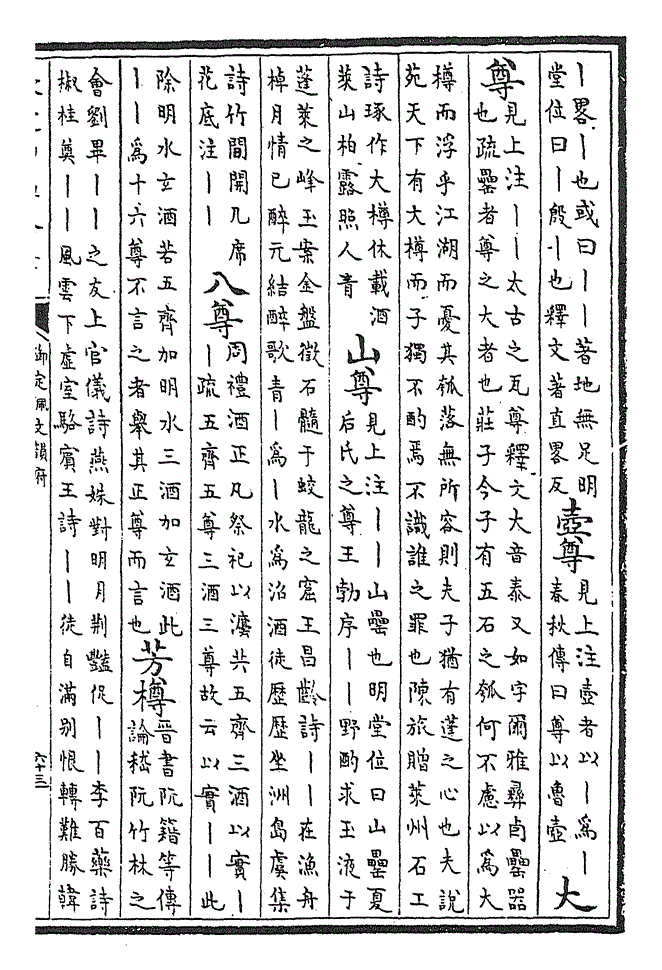 丨畧丨也或曰丨丨著地無足明
堂位曰丨殷丨也釋文著直畧反
壺尊
見上注壺者以丨為丨
春秋傳曰尊以魯壺
大
尊
見上注丨丨太古之瓦尊釋文大音泰又如字爾雅彝卣罍器
也疏罍者尊之大者也莊子今子有五石之瓠何不慮以為大
樽而浮乎江湖而憂其瓠落無所容則夫子猶有蓬之心也夫說
苑天下有大樽而子獨不酌焉不識誰之罪也陳旅贈萊州石工
詩琢作大樽休載酒
萊山柏露照人青
山尊
見上注丨丨山罍也明堂位曰山罍夏
后氏之尊王勃序丨丨野酌求玉液于
蓬萊之峰玉案金盤徵石髓于蛟龍之窟王昌齡詩丨丨在漁舟
棹月情已醉元結醉歌青丨為丨水為沼酒徒歷歷坐洲島虞集
詩竹間開几席
花底注丨丨
八尊
周禮酒正凡祭祀以灋共五齊三酒以實丨
丨疏五齊五尊三酒三尊故云以實丨丨此
除明水玄酒若五齊加明水三酒加玄酒此
丨丨為十六尊不言之者舉其正尊而言也
芳樽
晉書阮籍等傳
論嵇阮竹林之
會劉畢丨丨之友上官儀詩燕姝對明月荆豔促丨丨李百藥詩
椒桂奠丨丨風雲下虛室駱賓王詩丨丨徒自滿別恨轉難勝韓
御定佩文韻府
六十三